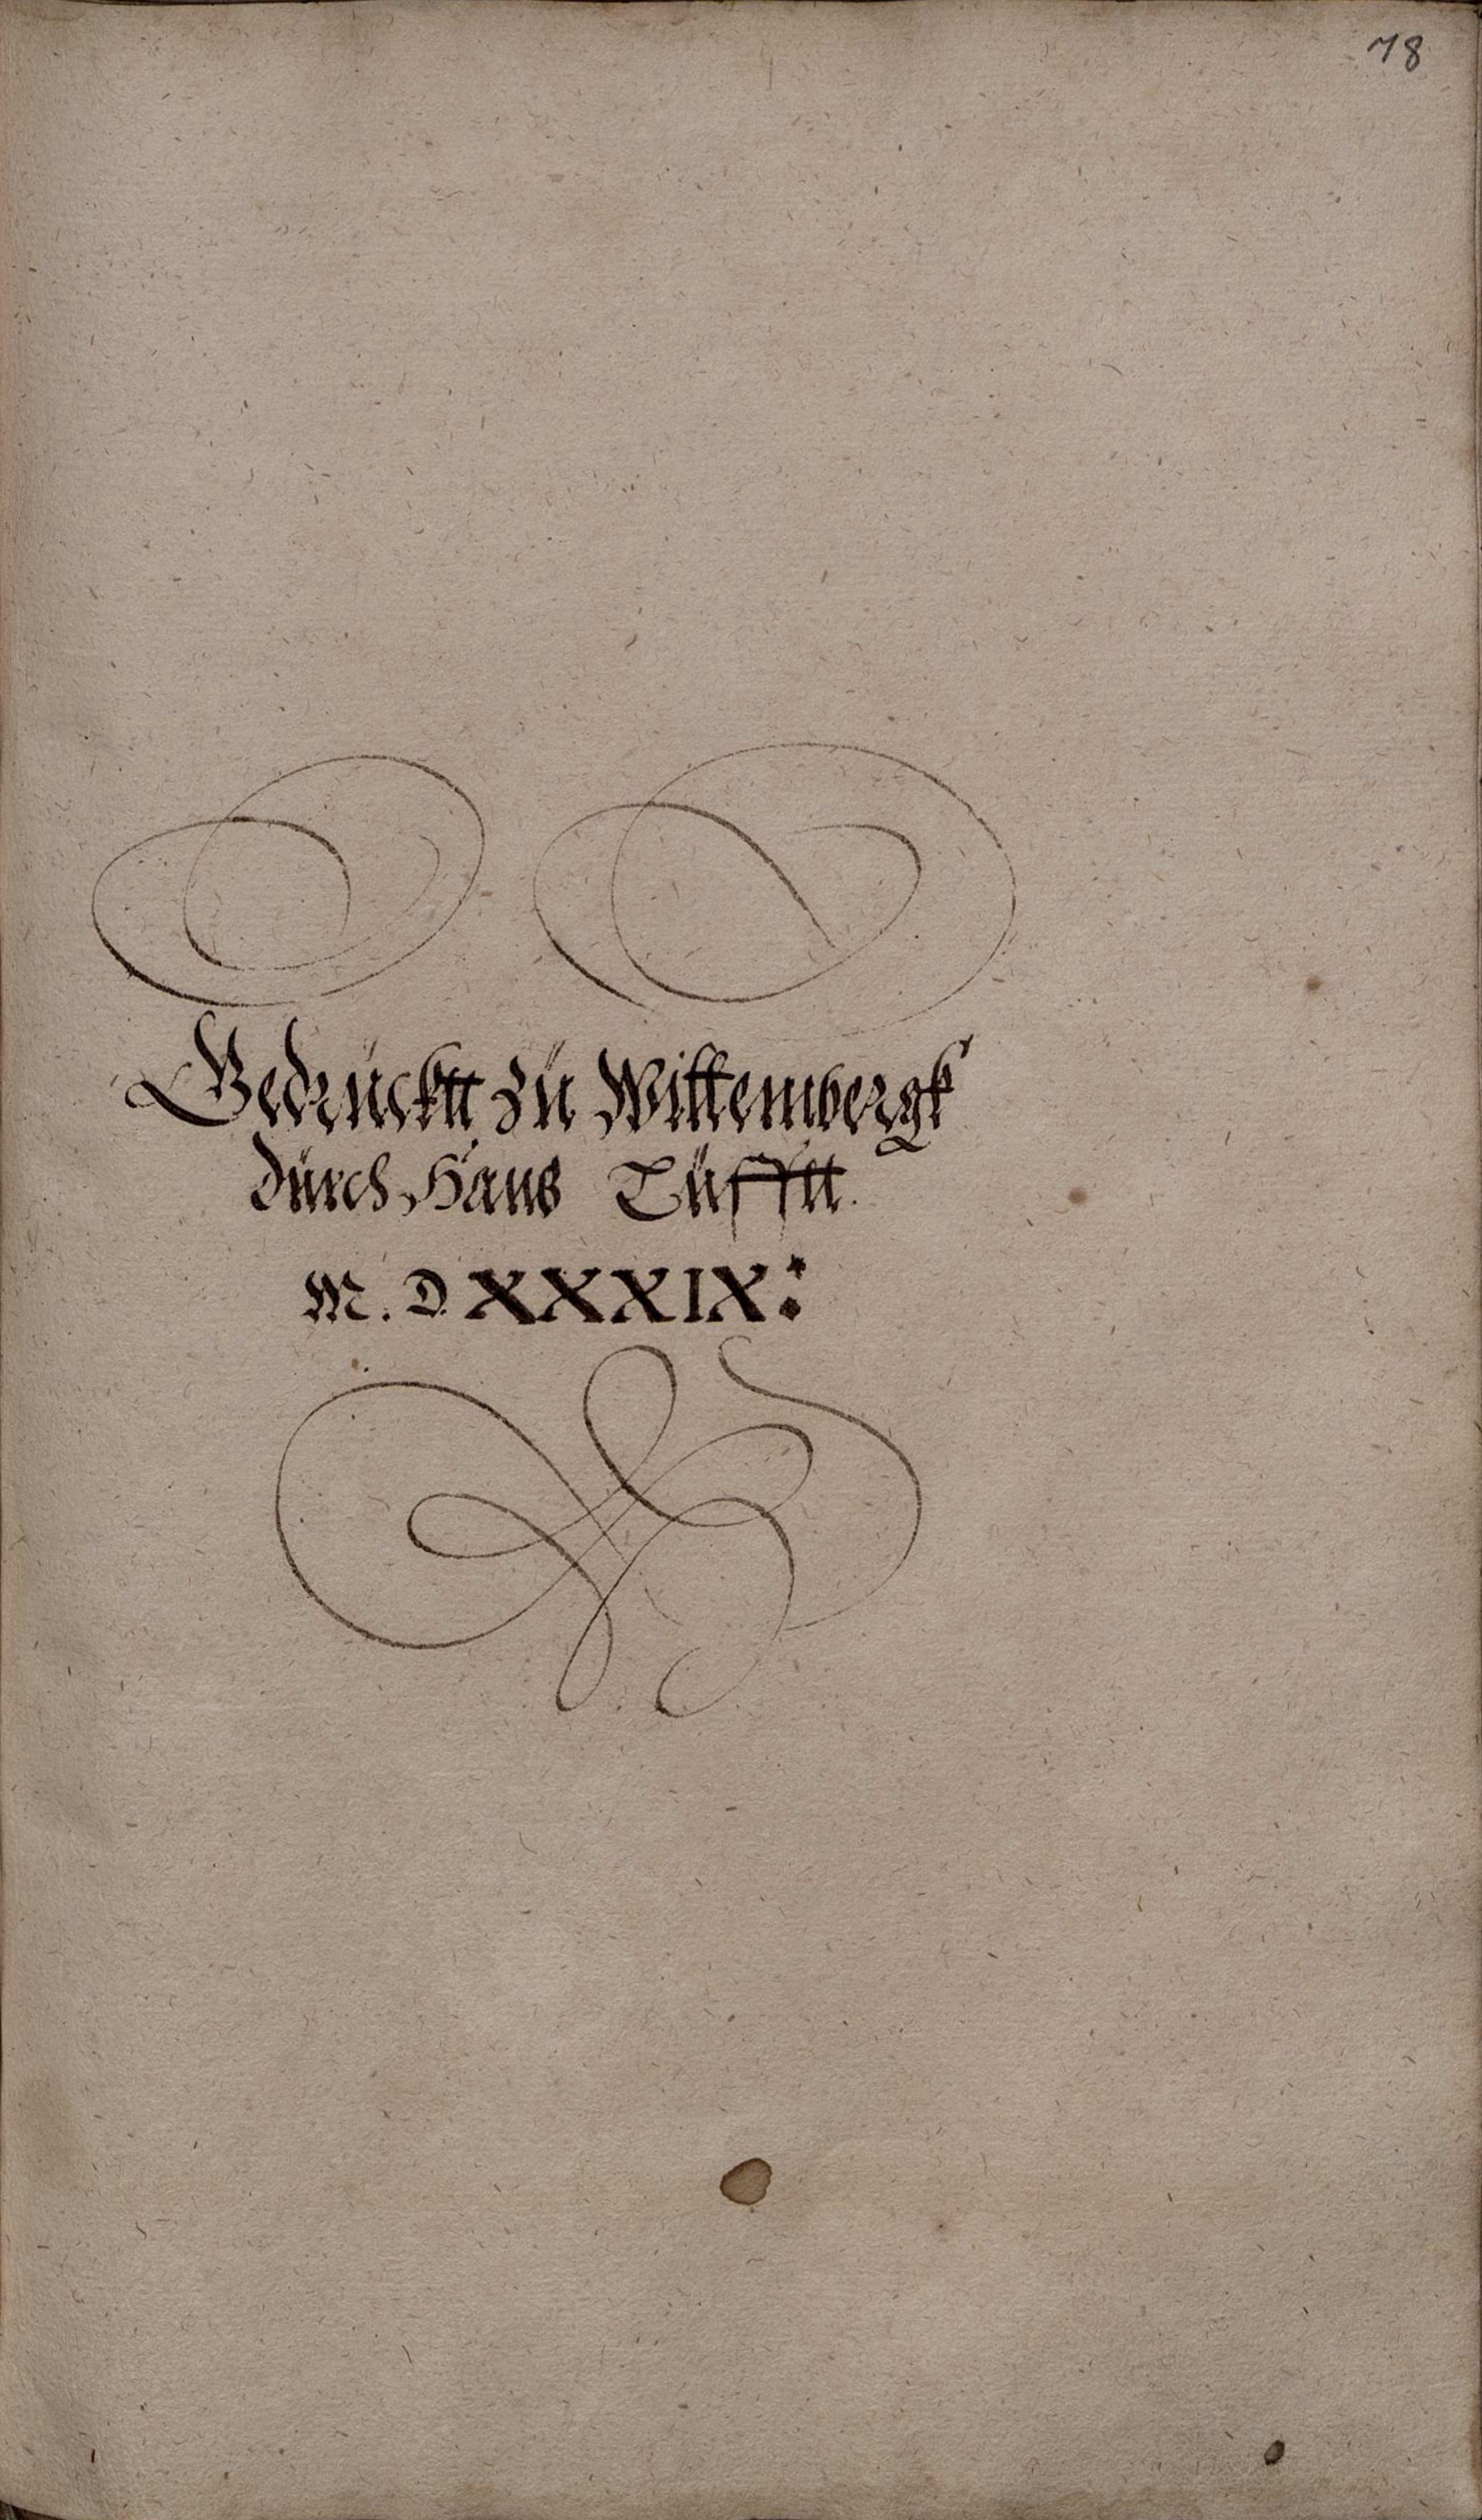 78
Gedrücktt zü Wittembergk
dürch Hans Tüfftt.
M. D. XXXIX: